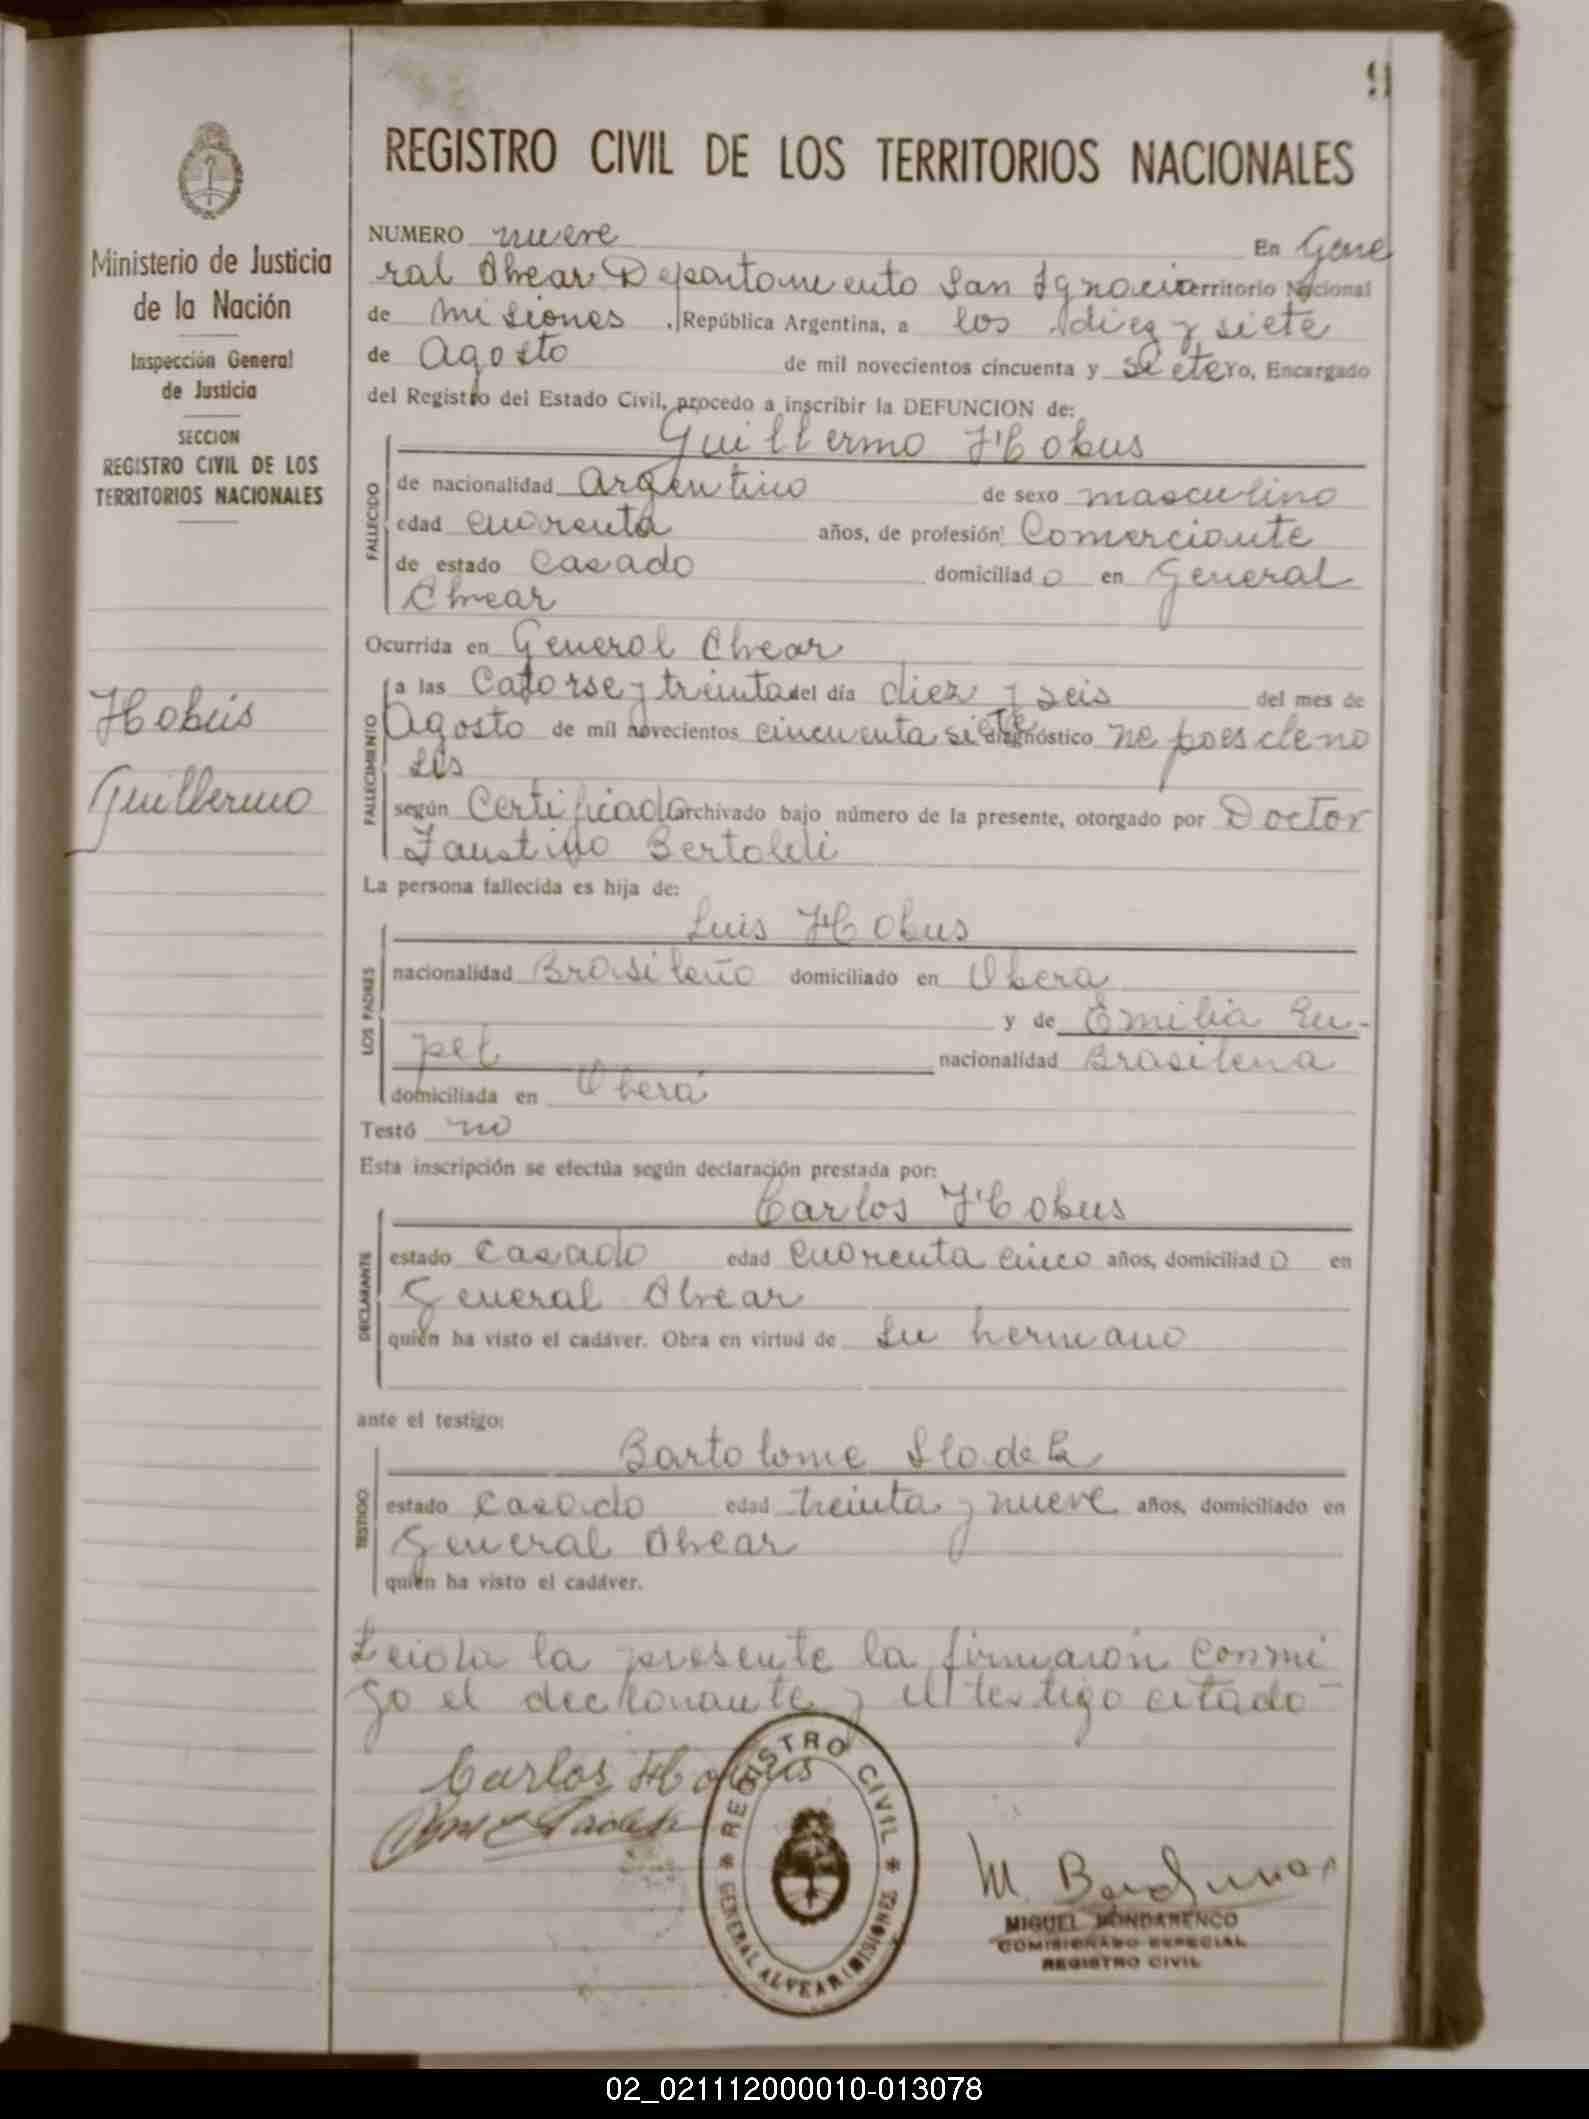 9
REGISTRO CIVIL DE LOS TERRITORIOS NACIONALES
Ministerio de Justicia
de la Nación
Inspección General
de Justicia
SECCION
REGISTRO CIVIL DE LOS
TERRITORIOS NACIONALES
Hobus
Guillermo
NUMERO nueve En Gene
ral Alvear Departomento San Ignacio Territorio Nacional
de misiones, República Argentina, a los diez y siete
de Agosto de mil novecientos cincuenta y siete Yo, Encargado
del Registro del Estado Civil, procedo a inscribir la DEFUNCION de:
Guillermo Hobus
FALLECIDO
de nacionalidad Argentino de sexo masculino
edad cuarenta años, de profesión Comerciante
de estado Casado domiciliado en General
Alvear
Ocurrida en General Alvear
FALLECIMIENTO
a las Catorse y treinta del día diez y seis del mes de
Agosto de mil novecientos cincuenta siete diagnóstico
según Certificado archivado bajo número de la presente, otorgado por Doctor
Faustino Bertoldi
La persona fallecida es hija de:
Luis Hobus
LOS PADRES
nacionalidad Brasileño domiciliado en Obera
y de Emilia
nacionalidad Brasilena
domiciliada en Oberá
Testó no
Esta inscripción se efectúa según declaración prestada por:
Carlos Hobus
DECLARANTE
estado Casado edad cuorenta cinco años, domiciliado en
General Alvear
quién ha visto el cadáver. Obra en virtud de su hermano
ante el testigo:
Bartolome
TESTIGO
estado Casado edad treinta y nueve años, domiciliado en
General Alvear
quién ha visto el cadáver.
Leida la presente la firmaron conmi
go el declonante y el testigo citado
Carlos Hobus
REGISTRO CIVIL
GENERAL ALVEAR (MISIONES)
MIGUEL BONDARENCO
COMISIONADO ESPECIAL
REGISTRO CIVIL
02_021112000010-013078